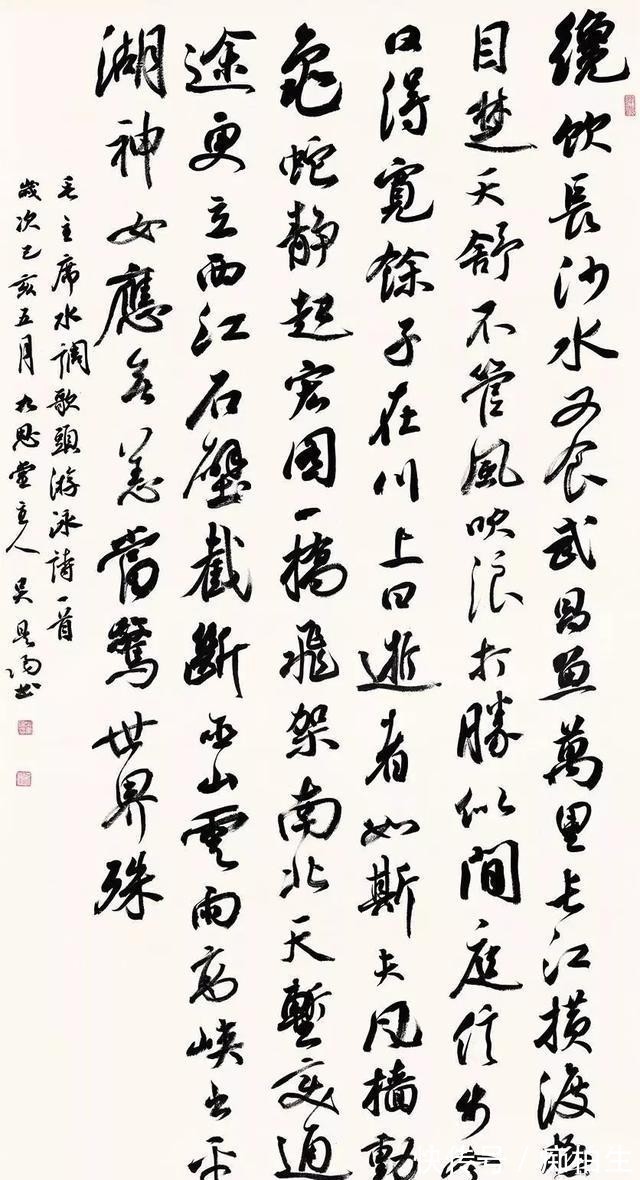 纔飲長沙水又食武昌魚萬里長江橫渡極
目楚天舒不管風吹浪打勝似閒庭信步
日得寬餘子在川上曰逝者如斯夫風檣動
龜蛇靜起宏圖一橋飛架南北天塹變通
途更立西江石壁截斷巫山雲雨高峽出平
湖神女應無恙當驚世界殊
毛主席水調歌頭游泳詩一首
歲次己亥五月九思堂主人吳书
快传号 /